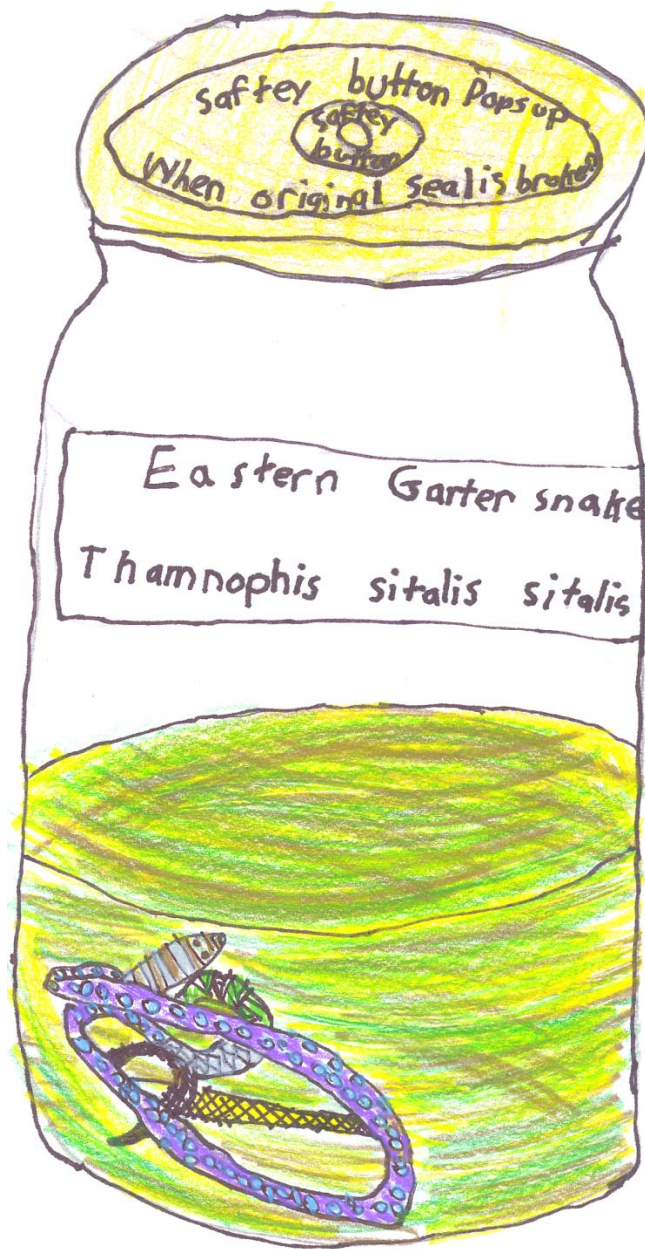 saftey button Pops up
saftey
button
When original seal is broken
Eastern Garter snake
Thamnophis sitalis sitalis